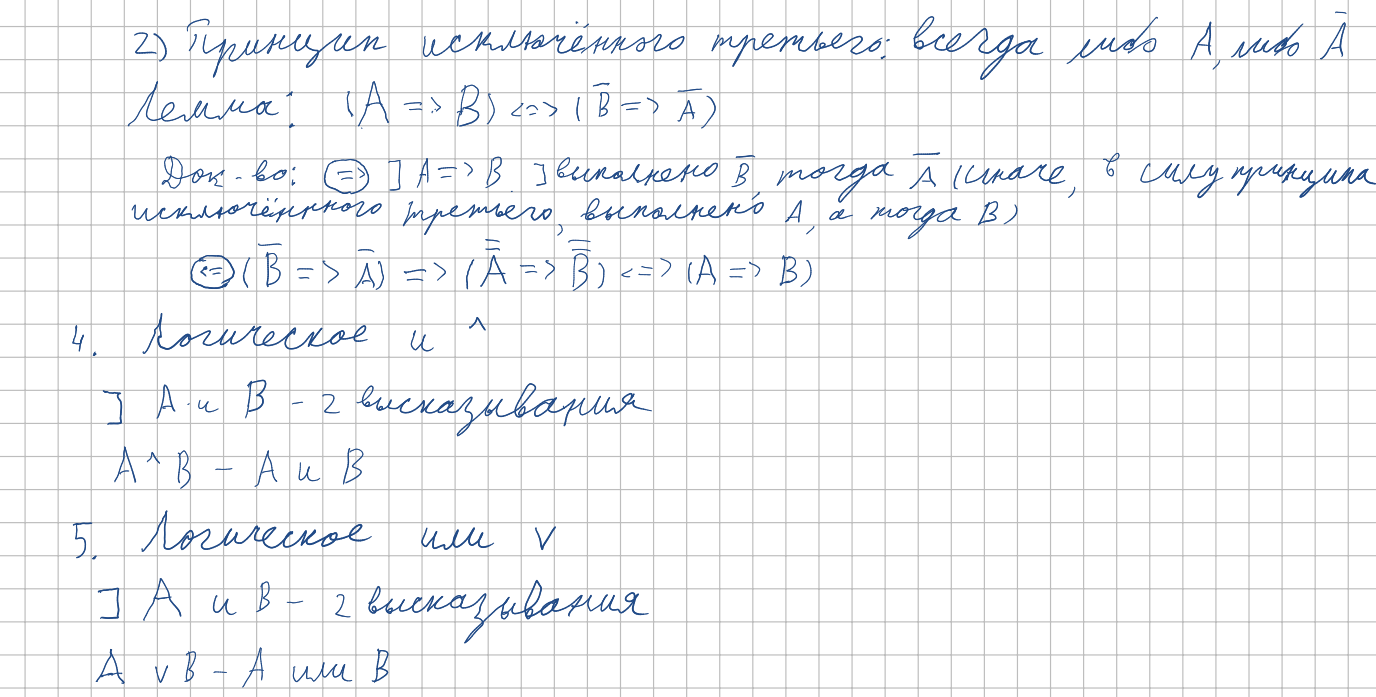 2) Принцип исключённого третьего: всегда либо A, либо A̅
Лемма: (A => B) <=> (B̅ => A̅)
Док-во: (=>) ] A => B. ] выполнено B̅, тогда A̅ (иначе, в силу принципа
исключённого третьего, выполнено A, а тогда B)
(<=) (B̅ => A̅) => (A̿ => B̿) <=> (A => B)
4. Логическое и ^
] A и B - 2 высказывания
A ^ B - A и B
5. Логическое или v
] A и B - 2 высказывания
A v B - A или B